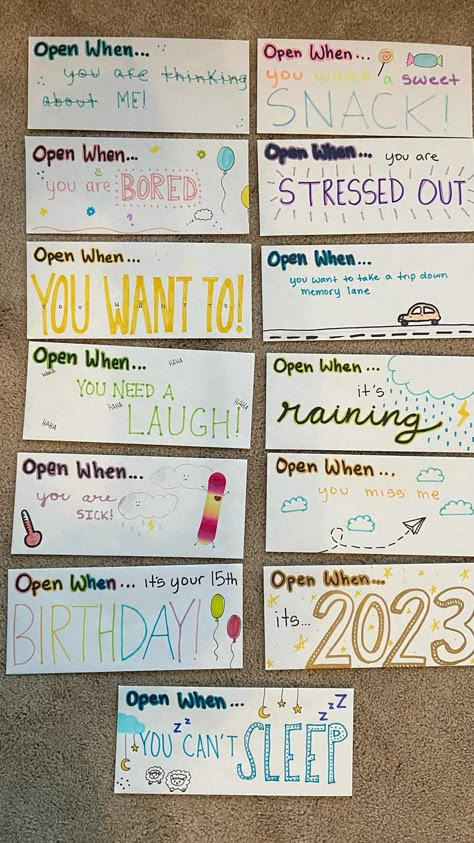 Open When...
you are thinking
about ME!
Open When...
you want a sweet
SNACK!
Open When...
you are BORED
?
Open When... you are
STRESSED OUT
Open When...
YOU WANT TO!
YOU WANT TO
Open When...
you want to take a trip down
memory lane
Open When...
HAHA
HAHA
YOU NEED A
HAHA
HAHA
LAUGH!
HAHA
Open When...
it's
raining
Open When...
you are
SICK!
Open When...
you miss me
Open When... it's your 15th
BIRTHDAY!
Open When...
its... 2023
Open When...
zzZ
zz
YOU CAN'T SLEEP